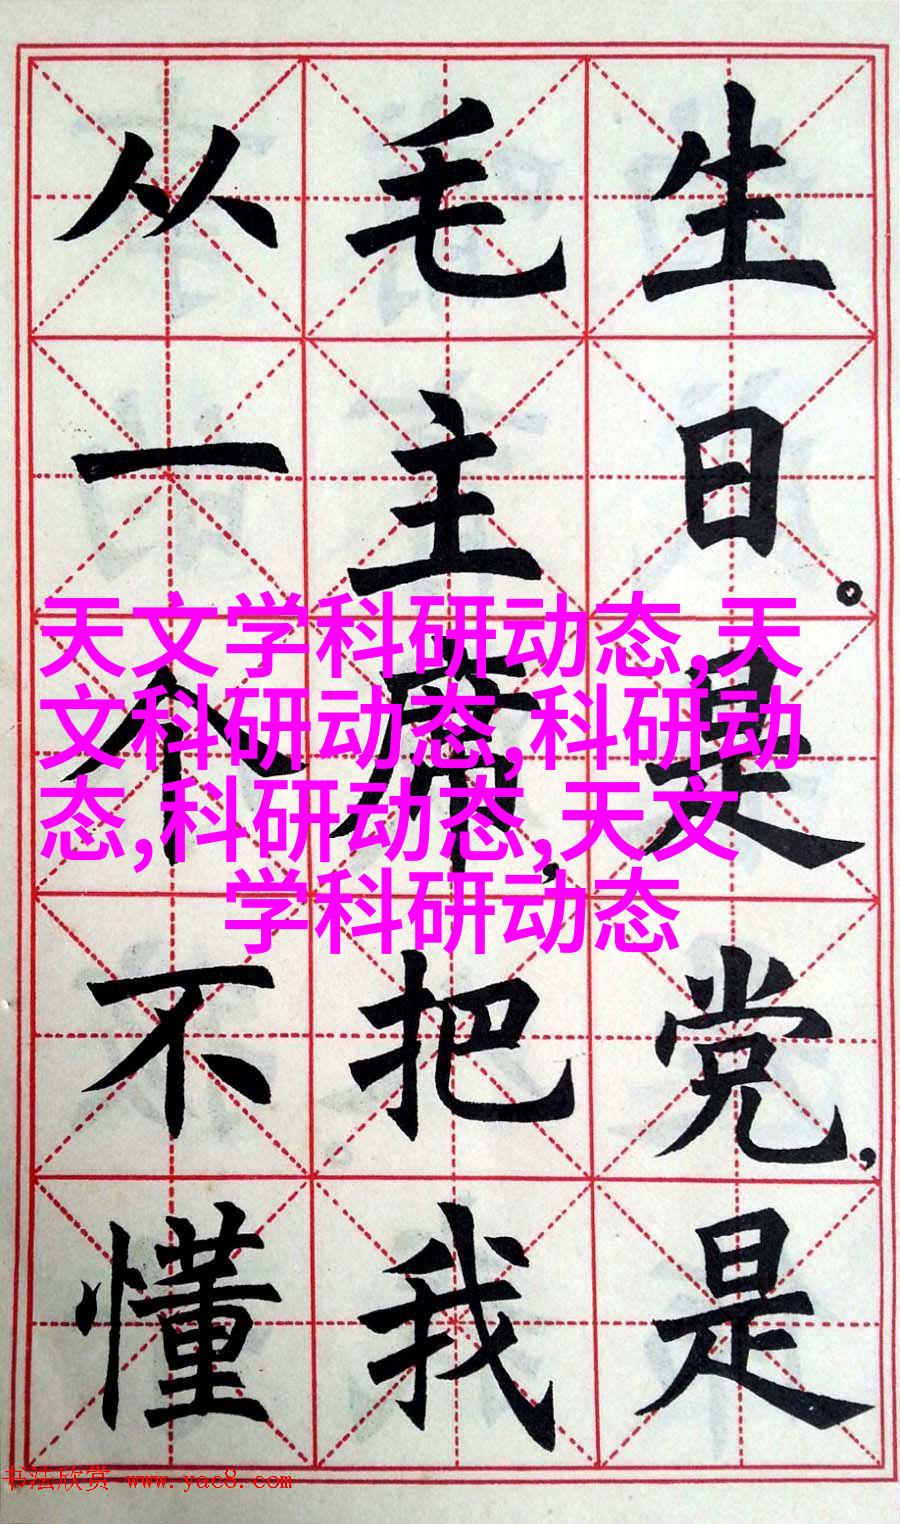 生日。是党,是
毛主席,把我
从一个不懂
天文学科研动态,天
文科研动态,科研动
态,科研动态,天文
学科研动态
书法欣赏 www.yac8.com